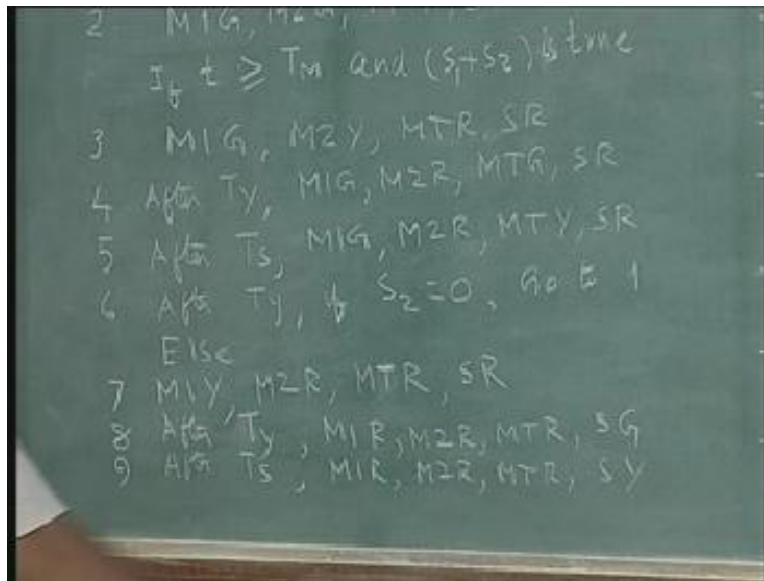 2 M1G, M2G,
If t ≥ TM and (S1+S2) is true
3 M1G, M2Y, MTR, SR
4 After Ty, M1G, M2R, MTG, SR
5 After Ts, M1G, M2R, MTY, SR
6 After Ty, if S2=0, Go to 1
Else
7 M1Y, M2R, MTR, SR
8 After Ty, M1R, M2R, MTR, SG
9 After Ts, M1R, M2R, MTR, SY